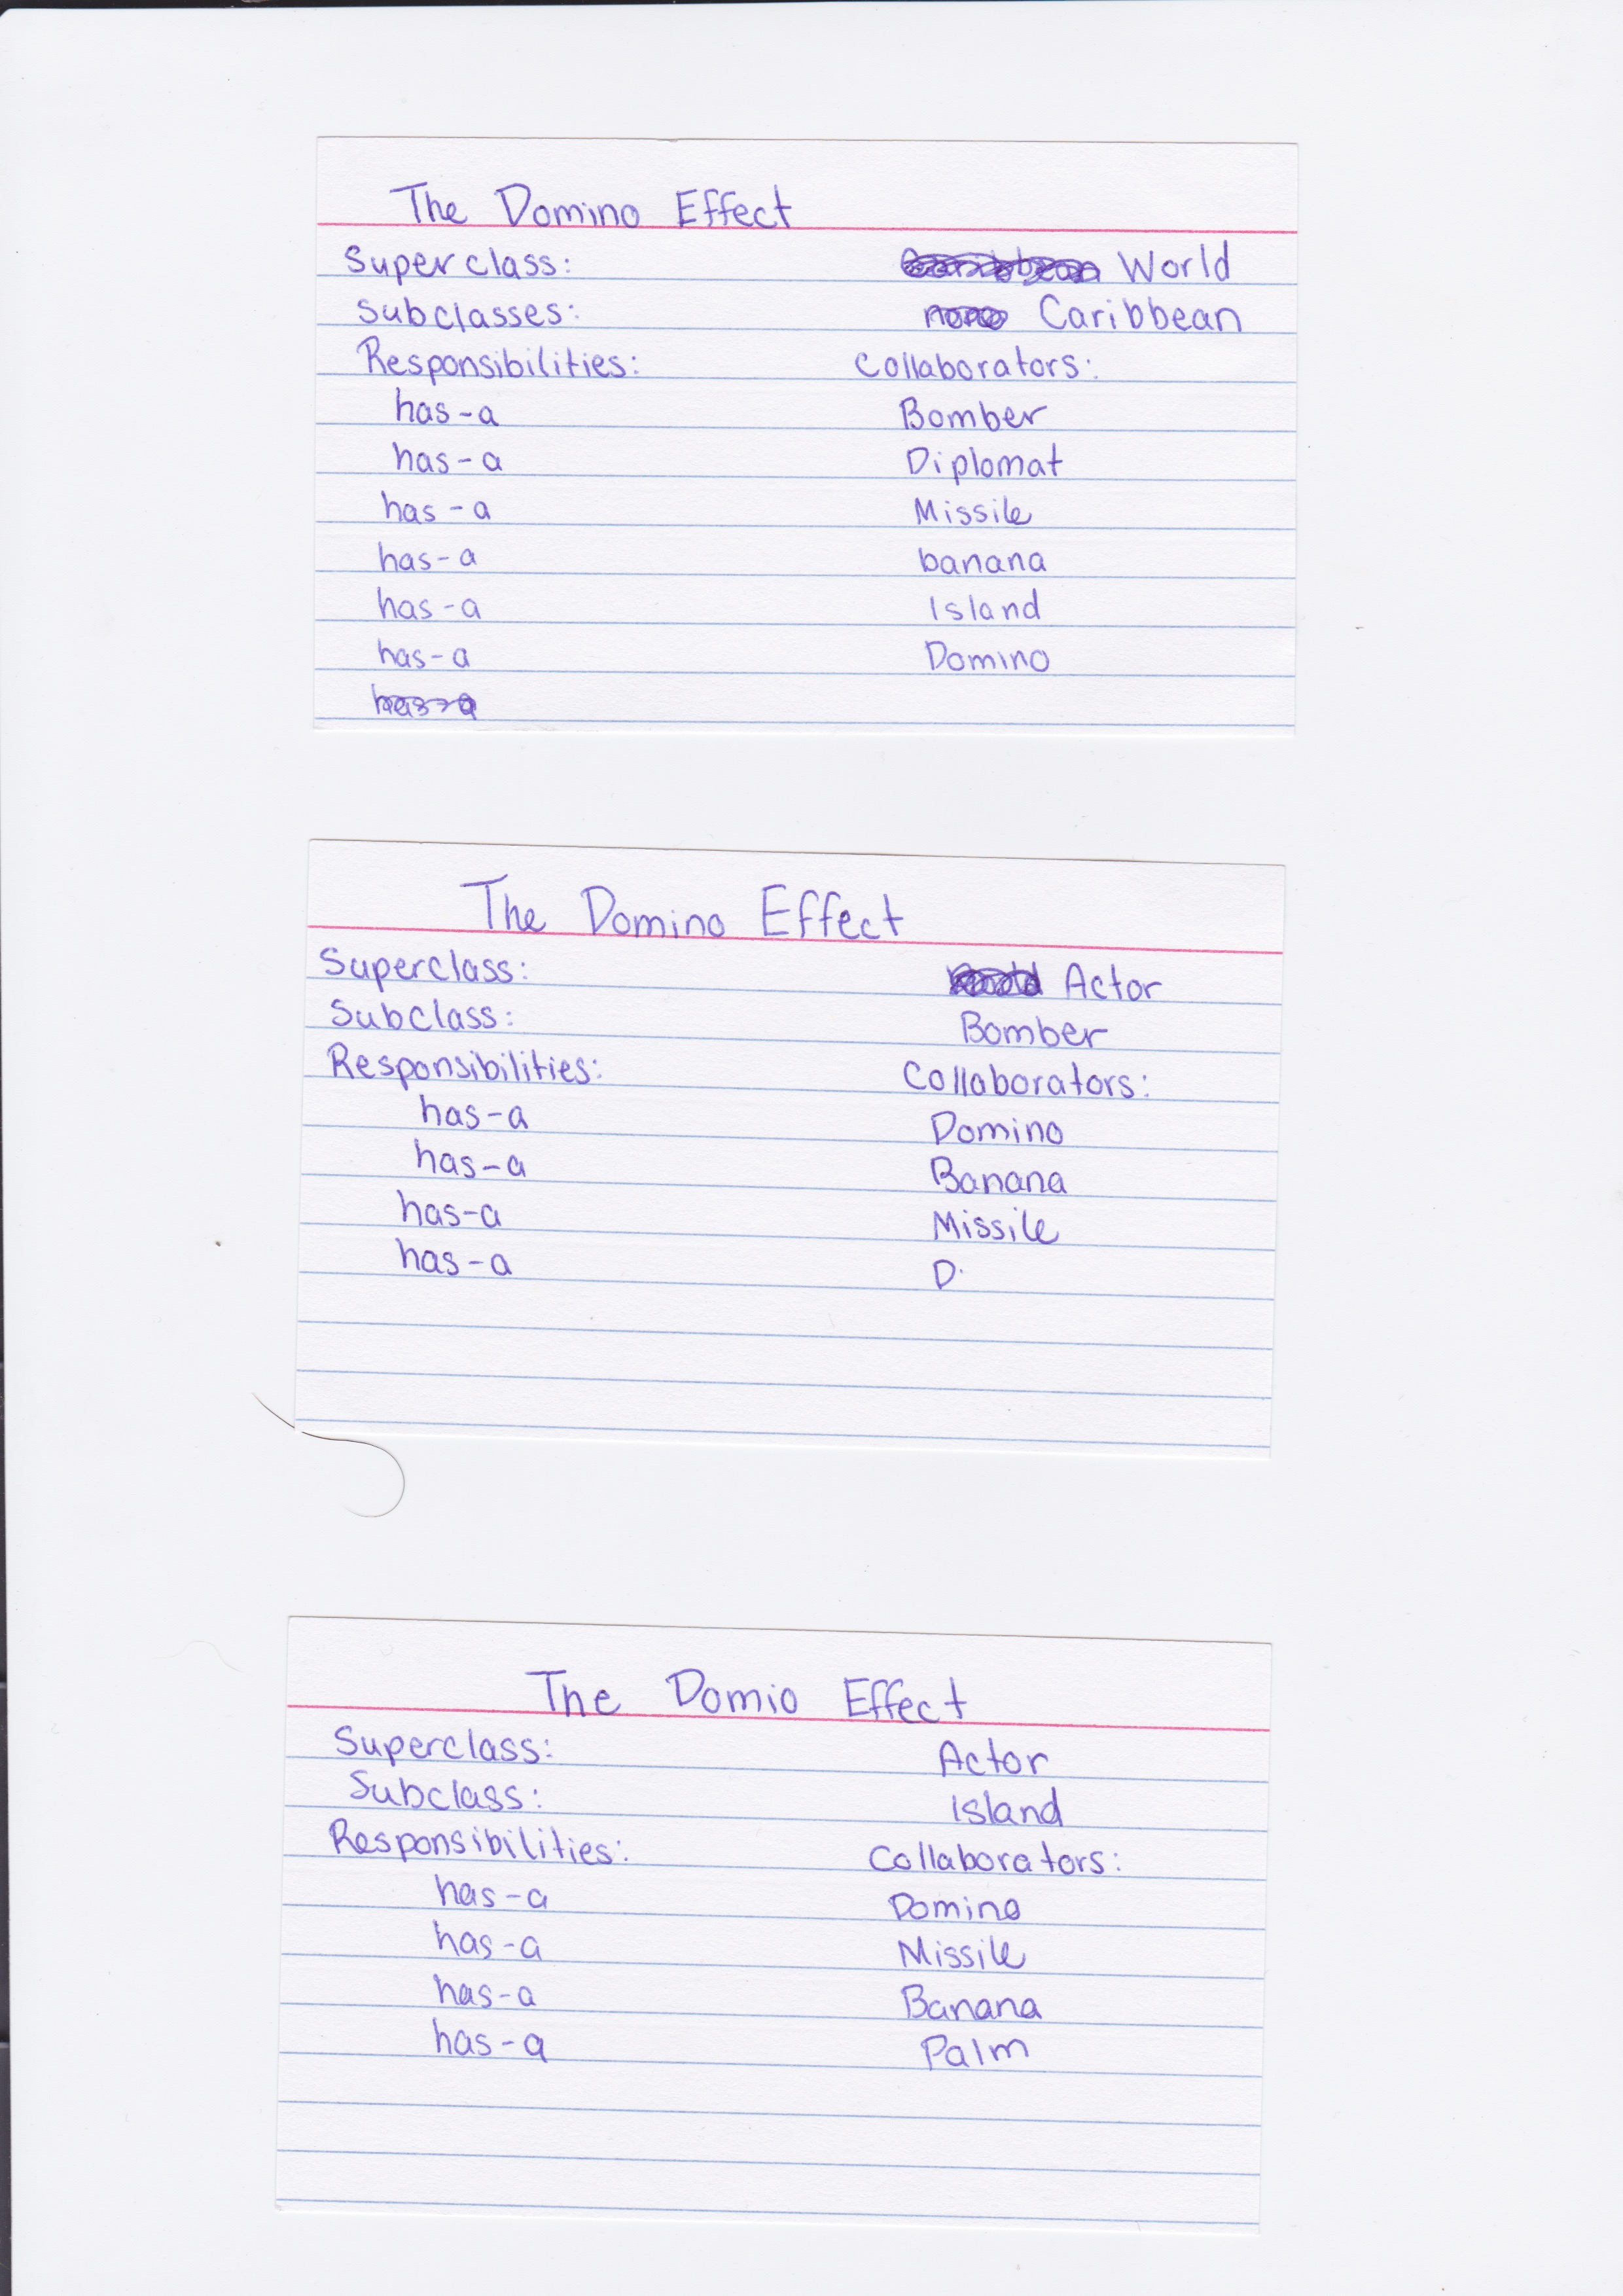 The Domino Effect
Superclass: World
Subclasses: Caribbean
Responsibilities: Collaborators:
has-a Bomber
has-a Diplomat
has-a Missile
has-a banana
has-a Island
has-a Domino
The Domino Effect
Superclass: Actor
Subclass: Bomber
Responsibilities: Collaborators:
has-a Domino
has-a Banana
has-a Missile
has-a D.
The Domio Effect
Superclass: Actor
Subclass: Island
Responsibilities: Collaborators:
has-a Domino
has-a Missile
has-a Banana
has-a Palm